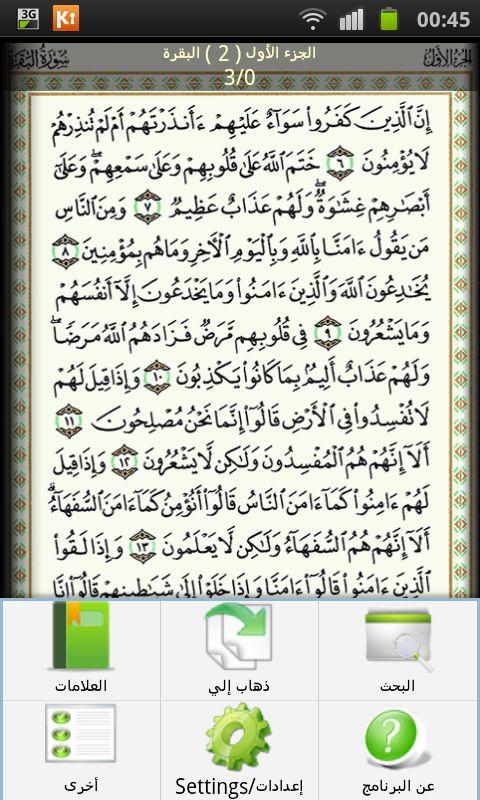 3G
00:45
سورة البقرة
الجزء الأول ( 2 ) البقرة
الجزء الأول
3/0
إِنَّ ٱلَّذِينَ كَفَرُواْ سَوَآءٌ عَلَيْهِمْ ءَأَنذَرْتَهُمْ أَمْ لَمْ تُنذِرْهُمْ
لَا يُؤْمِنُونَ ٦ خَتَمَ ٱللَّهُ عَلَىٰ قُلُوبِهِمْ وَعَلَىٰ سَمْعِهِمْ ۖ وَعَلَىٰٓ
أَبْصَٰرِهِمْ غِشَٰوَةٌ ۖ وَلَهُمْ عَذَابٌ عَظِيمٌ ٧ وَمِنَ ٱلنَّاسِ
مَن يَقُولُ ءَامَنَّا بِٱللَّهِ وَبِٱلْيَوْمِ ٱلْأَخِرِ وَمَا هُم بِمُؤْمِنِينَ ٨
يُخَٰدِعُونَ ٱللَّهَ وَٱلَّذِينَ ءَامَنُواْ وَمَا يَخْدَعُونَ إِلَّآ أَنفُسَهُمْ
وَمَا يَشْعُرُونَ ٩ فِى قُلُوبِهِم مَّرَضٌ فَزَادَهُمُ ٱللَّهُ مَرَضًا ۖ
وَلَهُمْ عَذَابٌ أَلِيمٌۢ بِمَا كَانُواْ يَكْذِبُونَ ١٠ وَإِذَا قِيلَ لَهُمْ
لَا تُفْسِدُواْ فِى ٱلْأَرْضِ قَالُوٓاْ إِنَّمَا نَحْنُ مُصْلِحُونَ ١١
أَلَآ إِنَّهُمْ هُمُ ٱلْمُفْسِدُونَ وَلَٰكِن لَّا يَشْعُرُونَ ١٢ وَإِذَا قِيلَ
لَهُمْ ءَامِنُواْ كَمَآ ءَامَنَ ٱلنَّاسُ قَالُوٓاْ أَنُؤْمِنُ كَمَآ ءَامَنَ ٱلسُّفَهَآءُ ۗ
أَلَآ إِنَّهُمْ هُمُ ٱلسُّفَهَآءُ وَلَٰكِن لَّا يَعْلَمُونَ ١٣ وَإِذَا لَقُواْ
ٱلَّذِينَ ءَامَنُواْ قَالُوٓاْ ءَامَنَّا وَإِذَا خَلَوْاْ إِلَىٰ شَيَٰطِينِهِمْ قَالُوٓاْ إِنَّا
البحث
ذهاب إلي
العلامات
عن البرنامج
إعدادات/Settings
أخرى